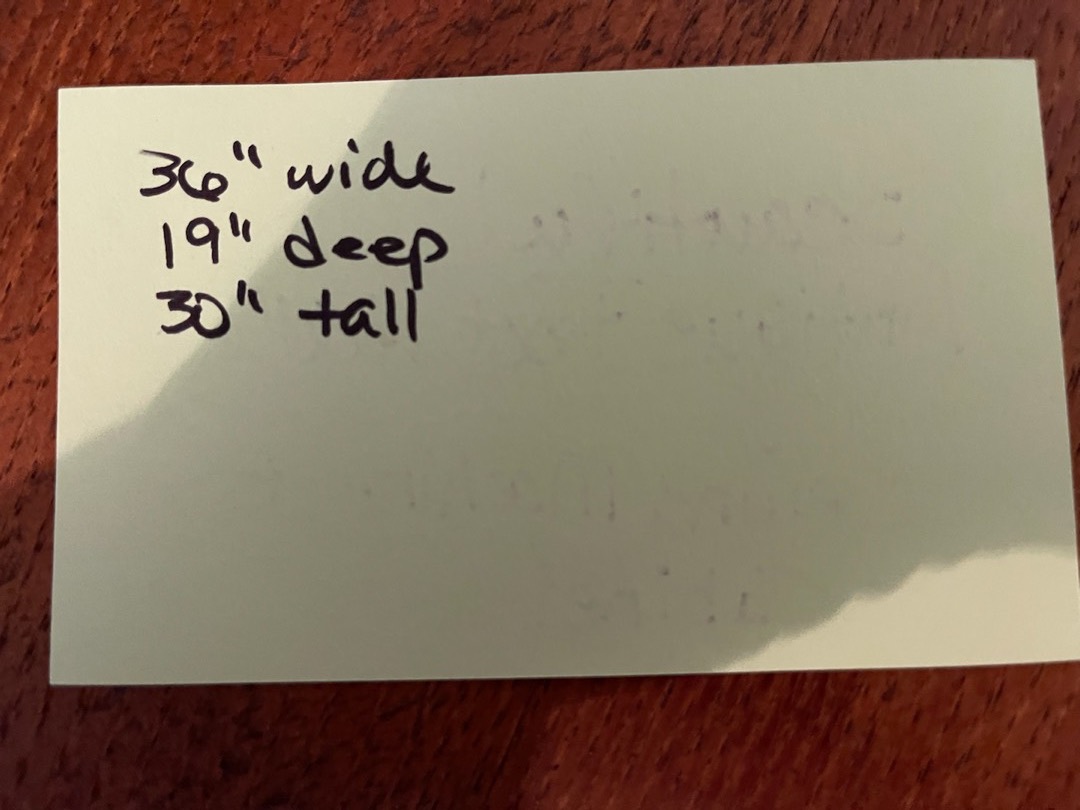 36" wide
19" deep
30" tall